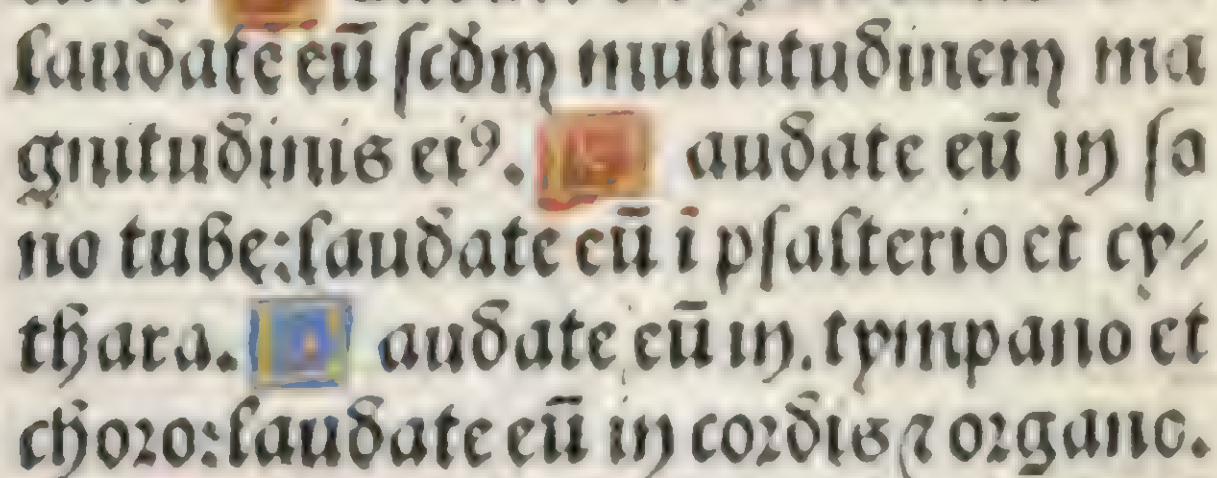 laudate eū scdm multitudinem ma
gnitudinis eiꝰ. Laudate eū in so
no tube: laudate eū ī psalterio et cy⸗
thara. Laudate eū in tympano et
choro: laudate eū in cordis ⁊ organo.